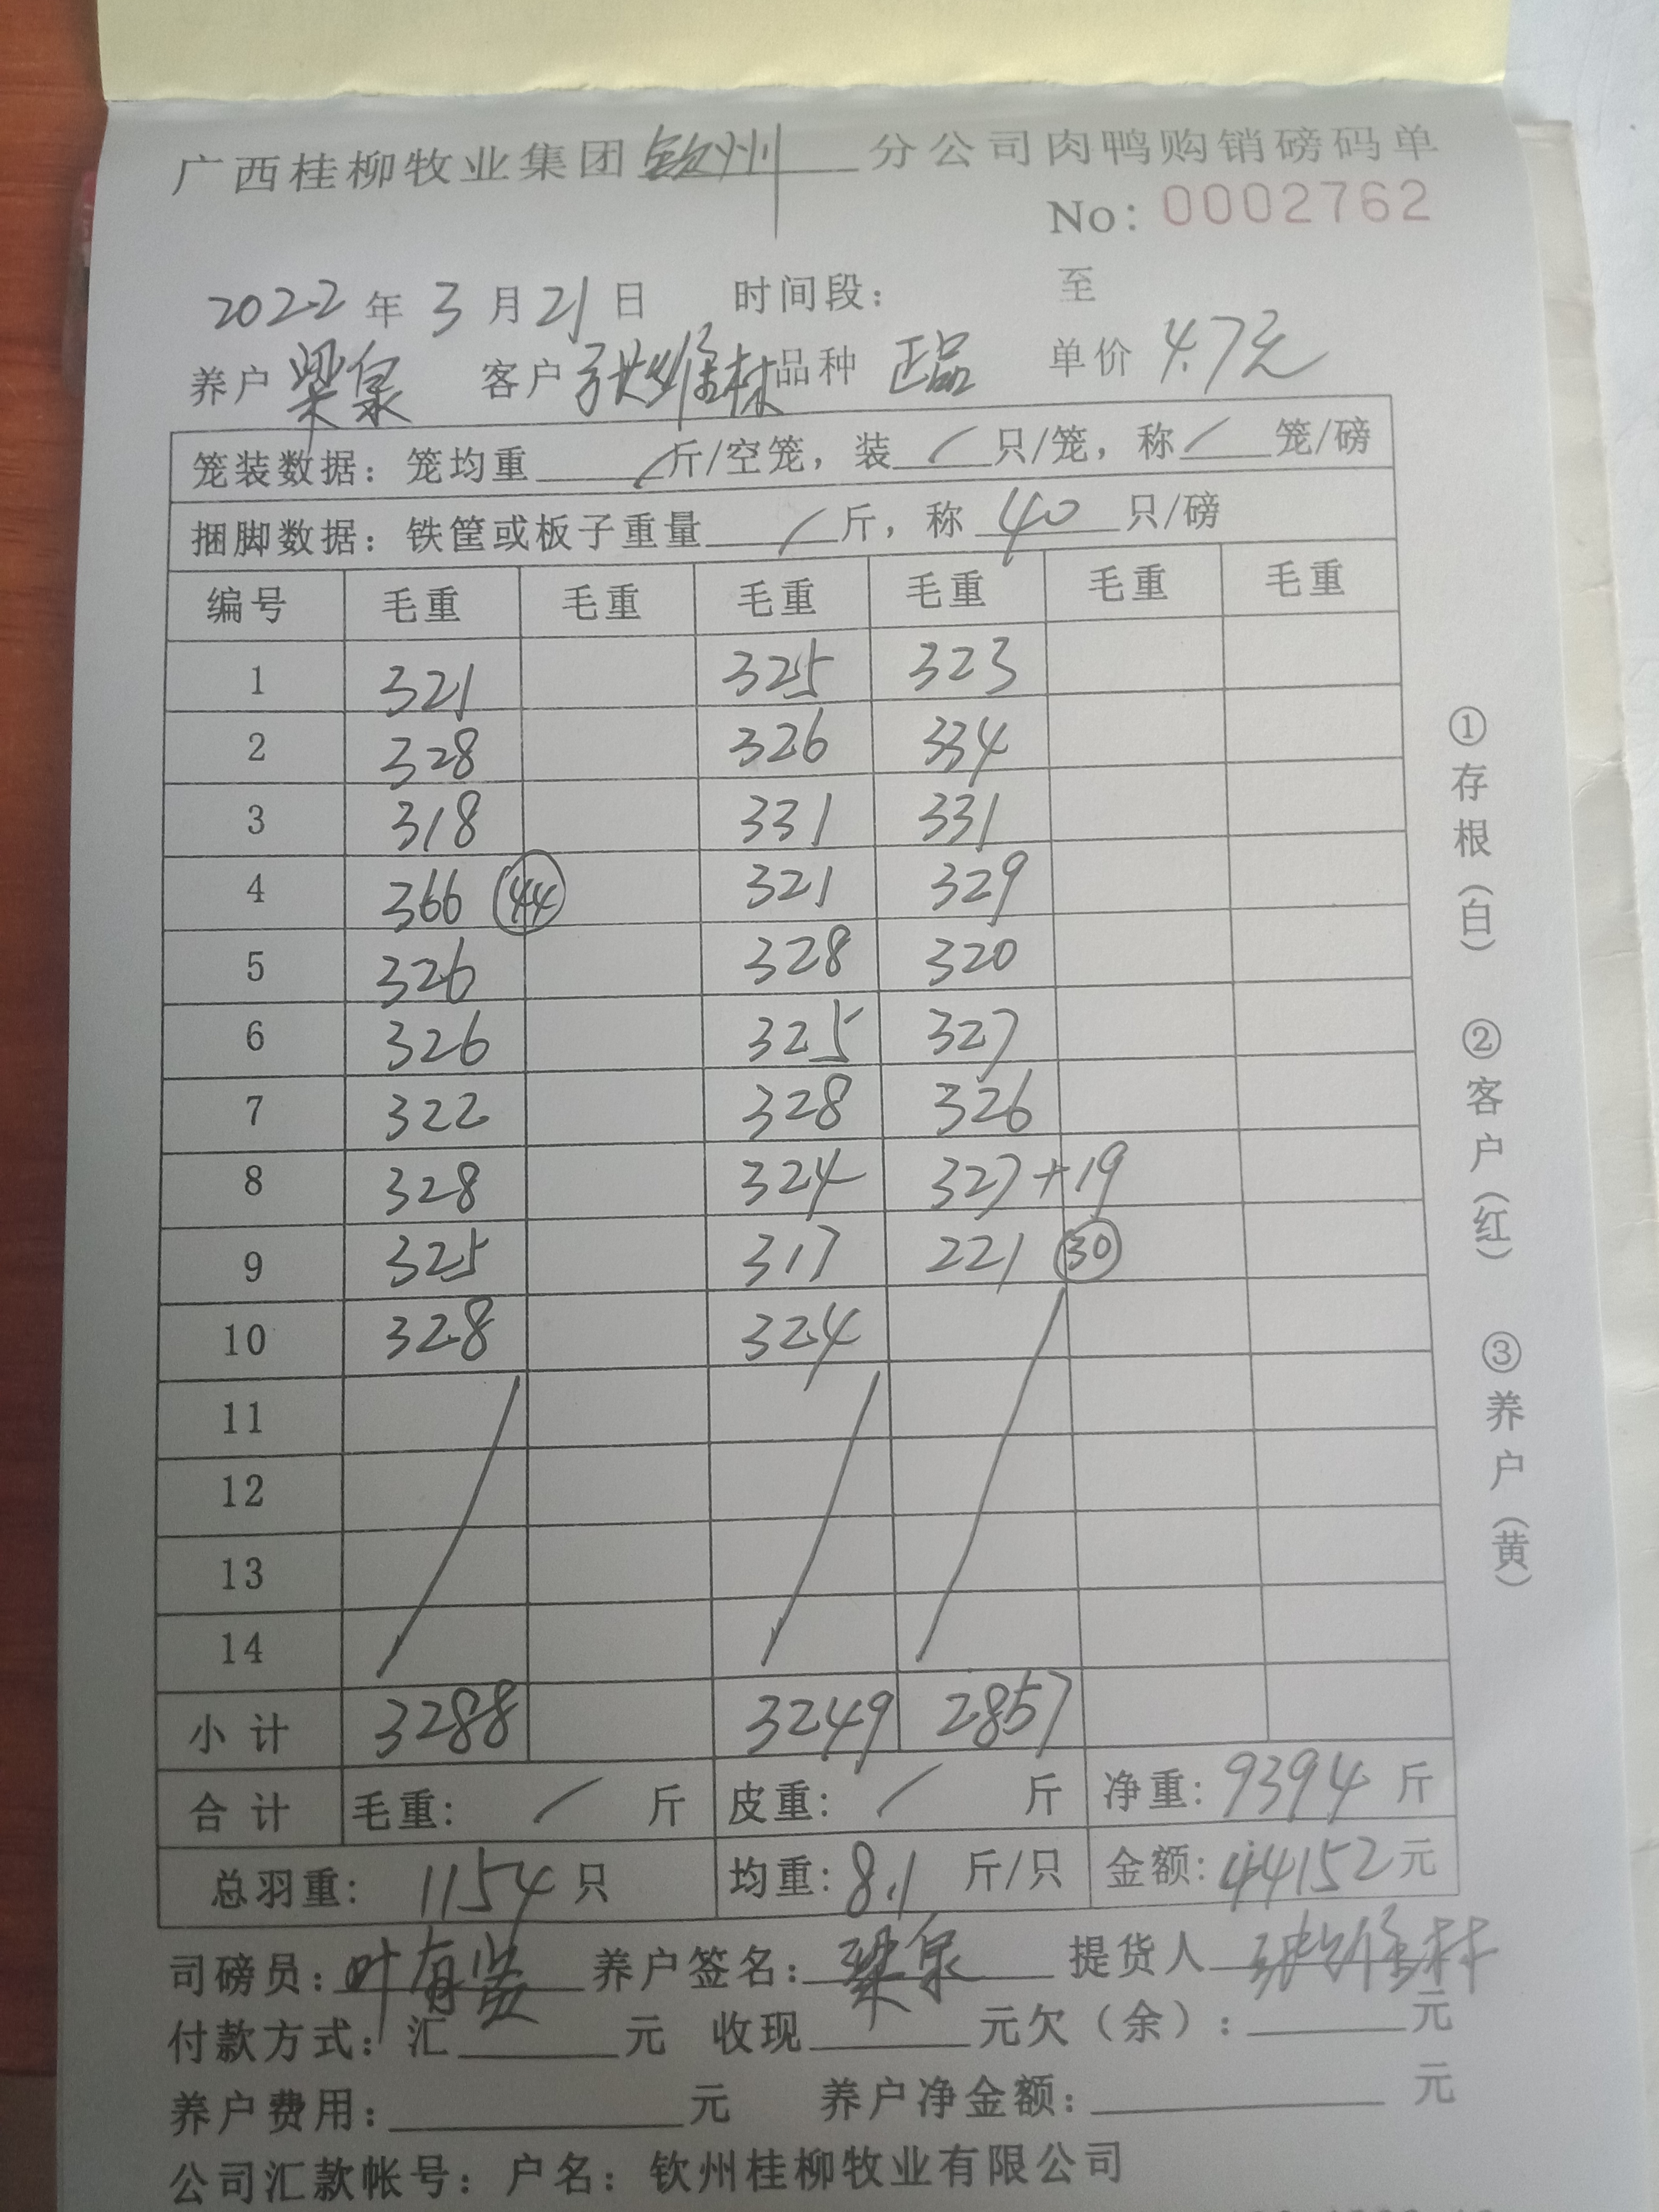 广西桂柳牧业集团钦州分公司肉鸭购销磅码单
No：0002762
2022年3月21日 时间段： 至
养户 梁泉 客户 张维林 品种 正品 单价 4.7元
笼装数据：笼均重 / 斤/空笼，装 / 只/笼，称 / 笼/磅
捆脚数据：铁筐或板子重量 / 斤，称 40 只/磅
编号 毛重 毛重 毛重 毛重 毛重 毛重
1 321 325 323
2 328 326 334
3 318 331 331
4 366 44 321 329
5 326 328 320
6 326 325 327
7 322 328 326
8 328 324 327+19
9 325 317 221 30
10 328 324
11
12
13
14
小计 3288 3249 2857
合计 毛重： / 斤 皮重： / 斤 净重：9394 斤
总羽重： 1154 只 均重：8.1 斤/只 金额：44152元
司磅员：叶有 养户签名：梁泉 提货人 张维林
付款方式：汇 元 收现 元欠（余）： 元
养户费用： 元 养户净金额： 元
公司汇款帐号：户名：钦州桂柳牧业有限公司
①存根（白） ②客户（红） ③养户（黄）